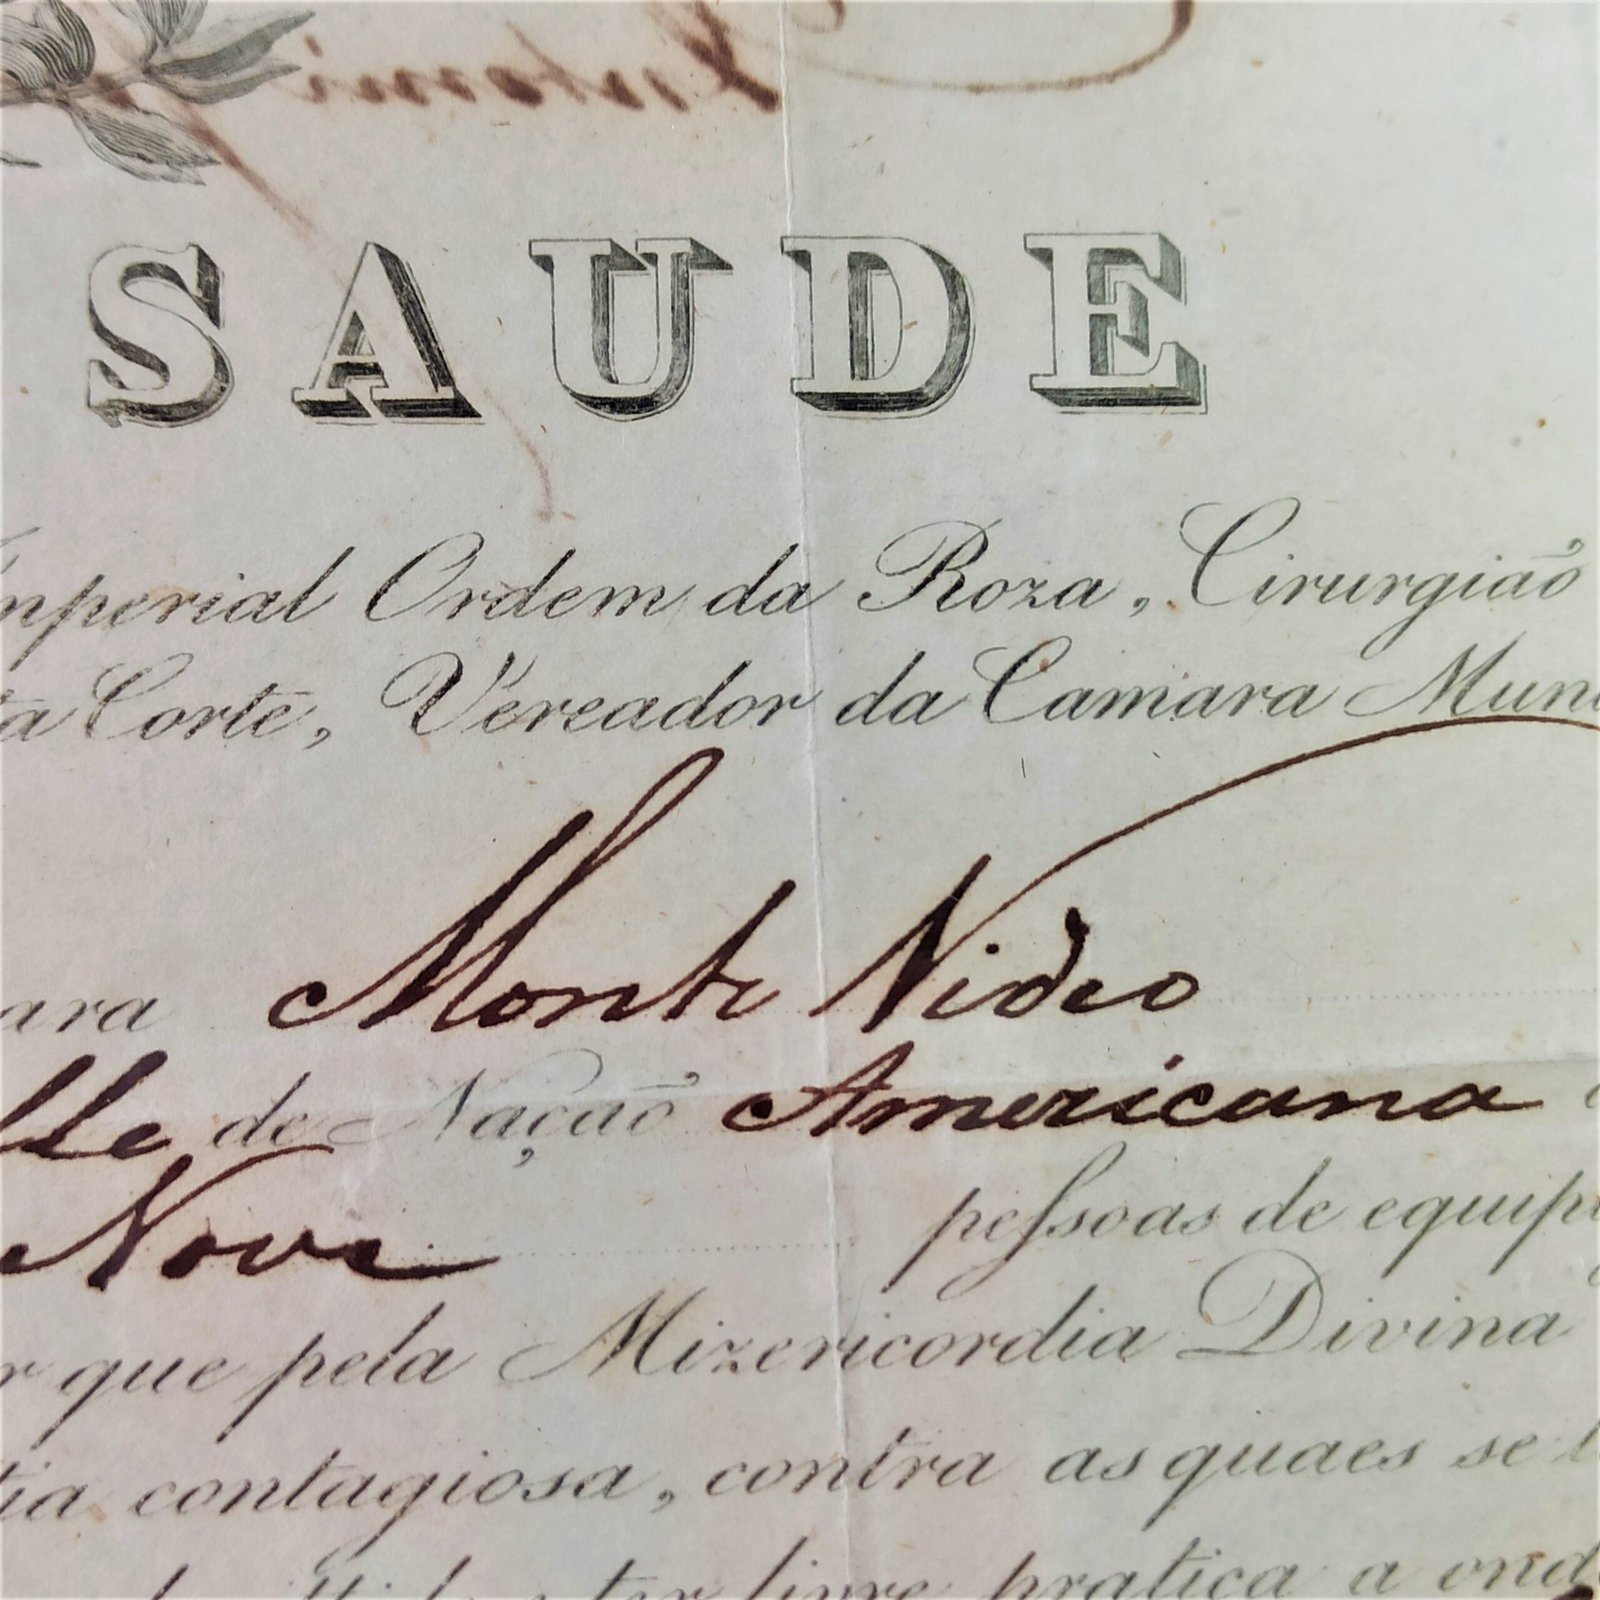 SAUDE
Imperial Ordem da Roza, Cirurgião
ta Corte, Vereador da Camara Muni
ara Monte Video
lle de Nação Americana
Nove pessoas de equip
r que pela Mizericordia Divina
tia contagiosa, contra as quaes se t
ter livre pratica a onde